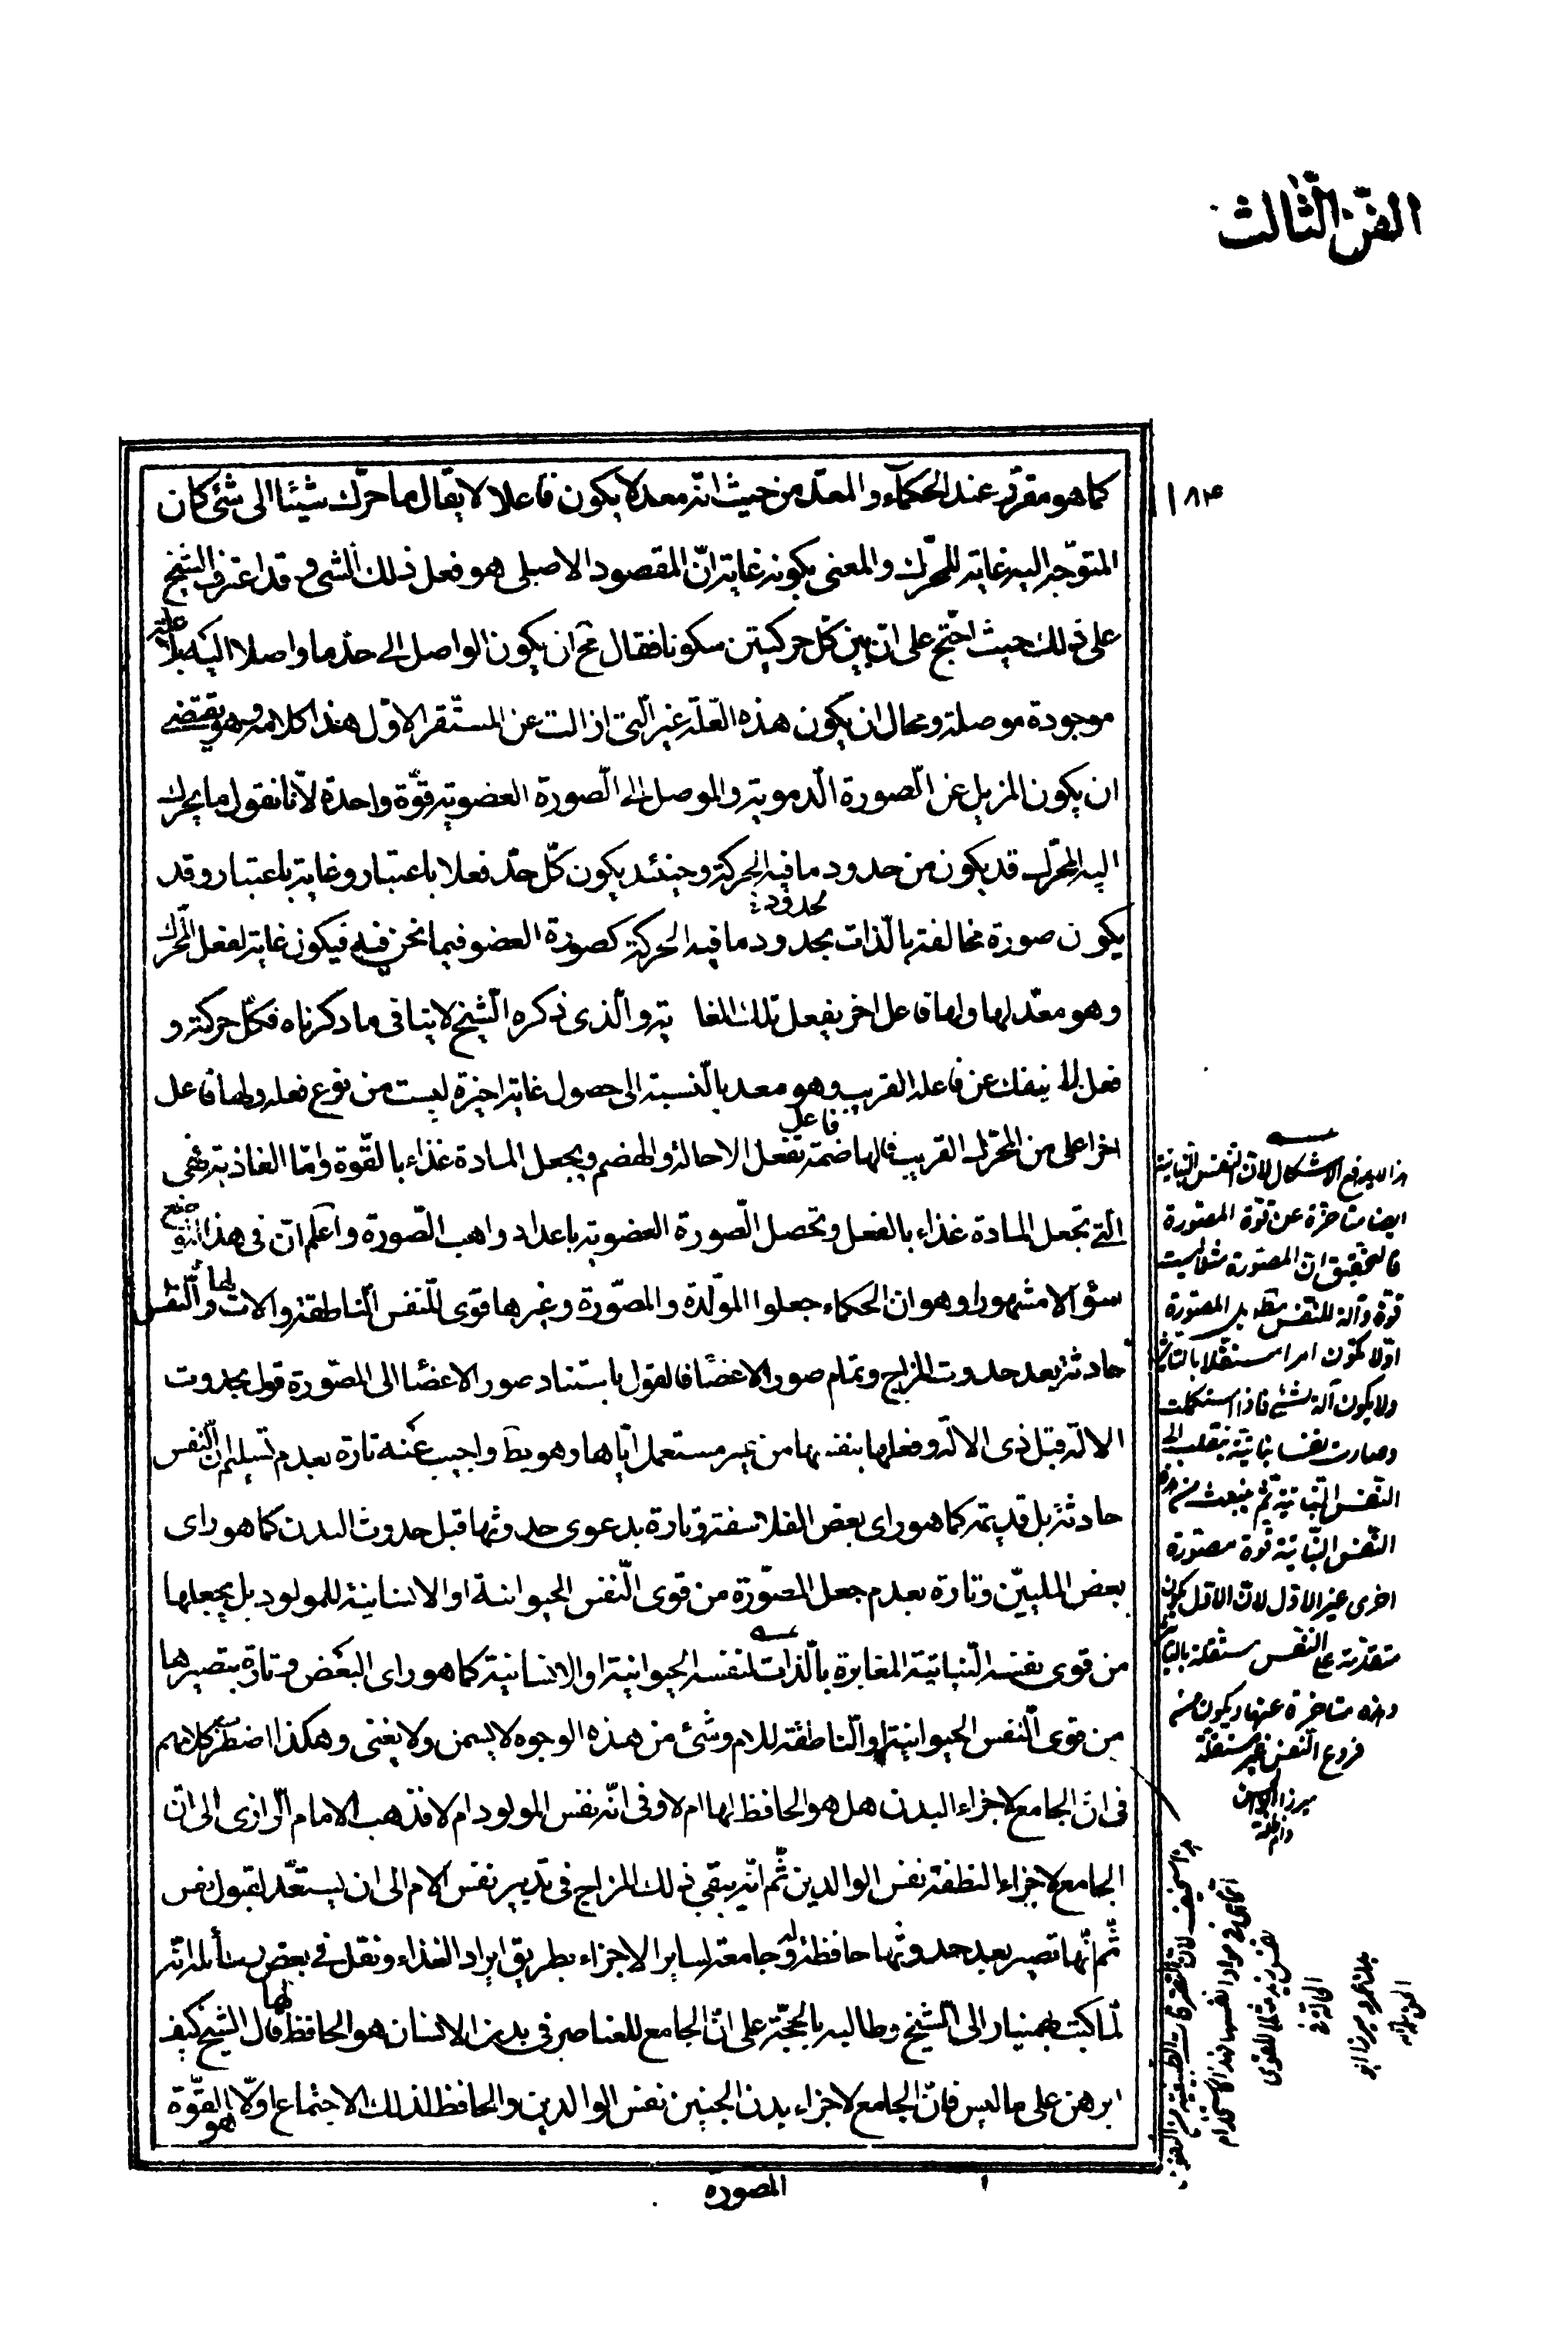 الفن الثالث
١٨٤
كما هو مقرر عند الحكماء والمعد من حيث انه معد لا يكون فاعلا لا يقال ما حرّك شيئا الى شئ كان
المتوجّه اليه غاية للمحرّك والمعنى بكونه غاية انّ المقصود الاصلى هو فعل ذلك الشئ و قد اعترف الشيخ
على ذلك حيث احتج على انّ بين كلّ حركتين سكونا فقال مح ان يكون الواصل الى حدّ ما واصلا اليه بلا علة
موجودة موصلة ومحال ان يكون هذه العلّة غير الّتى ازالت عن المستقر الاوّل هذا كلامه وهو يقتضى
ان يكون المزيل عن الصّورة الدّموية والموصل الى الصّورة العضوية قوّة واحدة لأنّا نقول ما يحرك
اليه المحرّك قد يكون من حدود ما فيه الحركة وحينئذ يكون كلّ حدّ فعلا باعتبار وغاية باعتبار وقد
لحدود
يكون صورة مخالفة بالّذات بحدود ما فيه الحركة كصورة العضو فيما نحن فيه فيكون غاية لفعل المحرّك
وهو معدّ لها ولها فاعل اخر يفعل تلك الغاية والّذى ذكره الشّيخ لا ينافى ما ذكرناه فكلّ حركة و
فعل لا ينفك عن فاعله القريب وهو معد بالنّسبة الى حصول غاية اخيرة ليست من نوع فعله ولها فاعل
فاعل
اخر اعلى من المحرّك القريب فالهاضمة تفعل الاحالة والهضم ويجعل المادة غذاء بالقّوة وامّا الغاذية فهى
الّتى تجعل المادة غذاء بالفعل وتحصل الصّورة العضوية باعداد واهب الصّورة واعلم انّ فى هذا الموضع
سؤالا مشهورا وهو ان الحكماء جعلوا المولّدة والمصّورة وغيرها قوى للنّفس النّاطقة والات لها والنّفس
حادثة بعد حدوث المزاج وتمام صور الاعضاء فالقول باستناد صور الاعضا الى المصّورة قول بحدوث
الالة قبل ذى الالة وفعلها بنفسها من غير مستعمل ايّاها وهو بط واجيب عنه تارة بعدم تسليم انّ النّفس
حادثة بل قديمة كما هو راى بعض الفلاسفة وتارة بدعوى حدوثها قبل حدوث البدن كما هو راى
بعض المليّين وتارة بعدم جعل المصّورة من قوى النّفس الحيوانية او الانسانية للمولود بل يجعلها
من قوى نفسه النّباتية المغايرة بالّذات لنفسه الحيوانية او الانسانية كما هو راى البعض وتارة بتصييرها
من قوى النّفس الحيوانية او النّاطقة للام وشئ من هذه الوجوه لا يسمن ولا يغنى وهكذا اضطرب كلامهم
فى انّ الجامع لاجزاء البدن هل هو الحافظ لها ام لا وفى انّه نفس المولود ام لا فذهب الامام الرّازى الى انّ
الجامع لاجزاء النطفة نفس الوالدين ثّم انّه يبقى ذلك المزاج فى تدبير نفس الام الى ان يستعدّ لقبول نفس
ثّم انّها تصير بعد حدوثها حافظة له وجامعة لساير الاجزاء بطريق ايراد الغذاء ونقل فى بعض رسائله انّه
لما كتب بهمنيار الى الشّيخ وطالبه بالحجّة على انّ الجامع للعناصر فى بدن الانسان هو الحافظ لها قال الشيخ كيف
ابرهن على ما ليس فانّ الجامع لاجزاء بدن الجنين نفس الوالدين والحافظ لذلك الاجتماع اولا هو القّوة
المصورة
هذا لا يدفع الاشكال لان النفس النباتية
ايضا متاخرة عن قوة المصورة
فالتحقيق ان المصورة مثلا ليست
قوة وآلة للنفس مطلقا بل المصورة
اولا تكون امرا مستقلا بالتاثير
ولا يكون آلة لشئ فاذا استكملت
وصارت نفسا نباتية ينقلب الى
النفس النباتية ثم ينبعث من هذه
النفس النباتية قوة مصورة
اخرى غير الاول لان الاول يكون
متقدمة على النفس مستقلة بالتاثير
وهذه متاخرة عنها ويكون من
فروع النفس غير مستقلة
ميرزا ابو الحسن
دام ظله